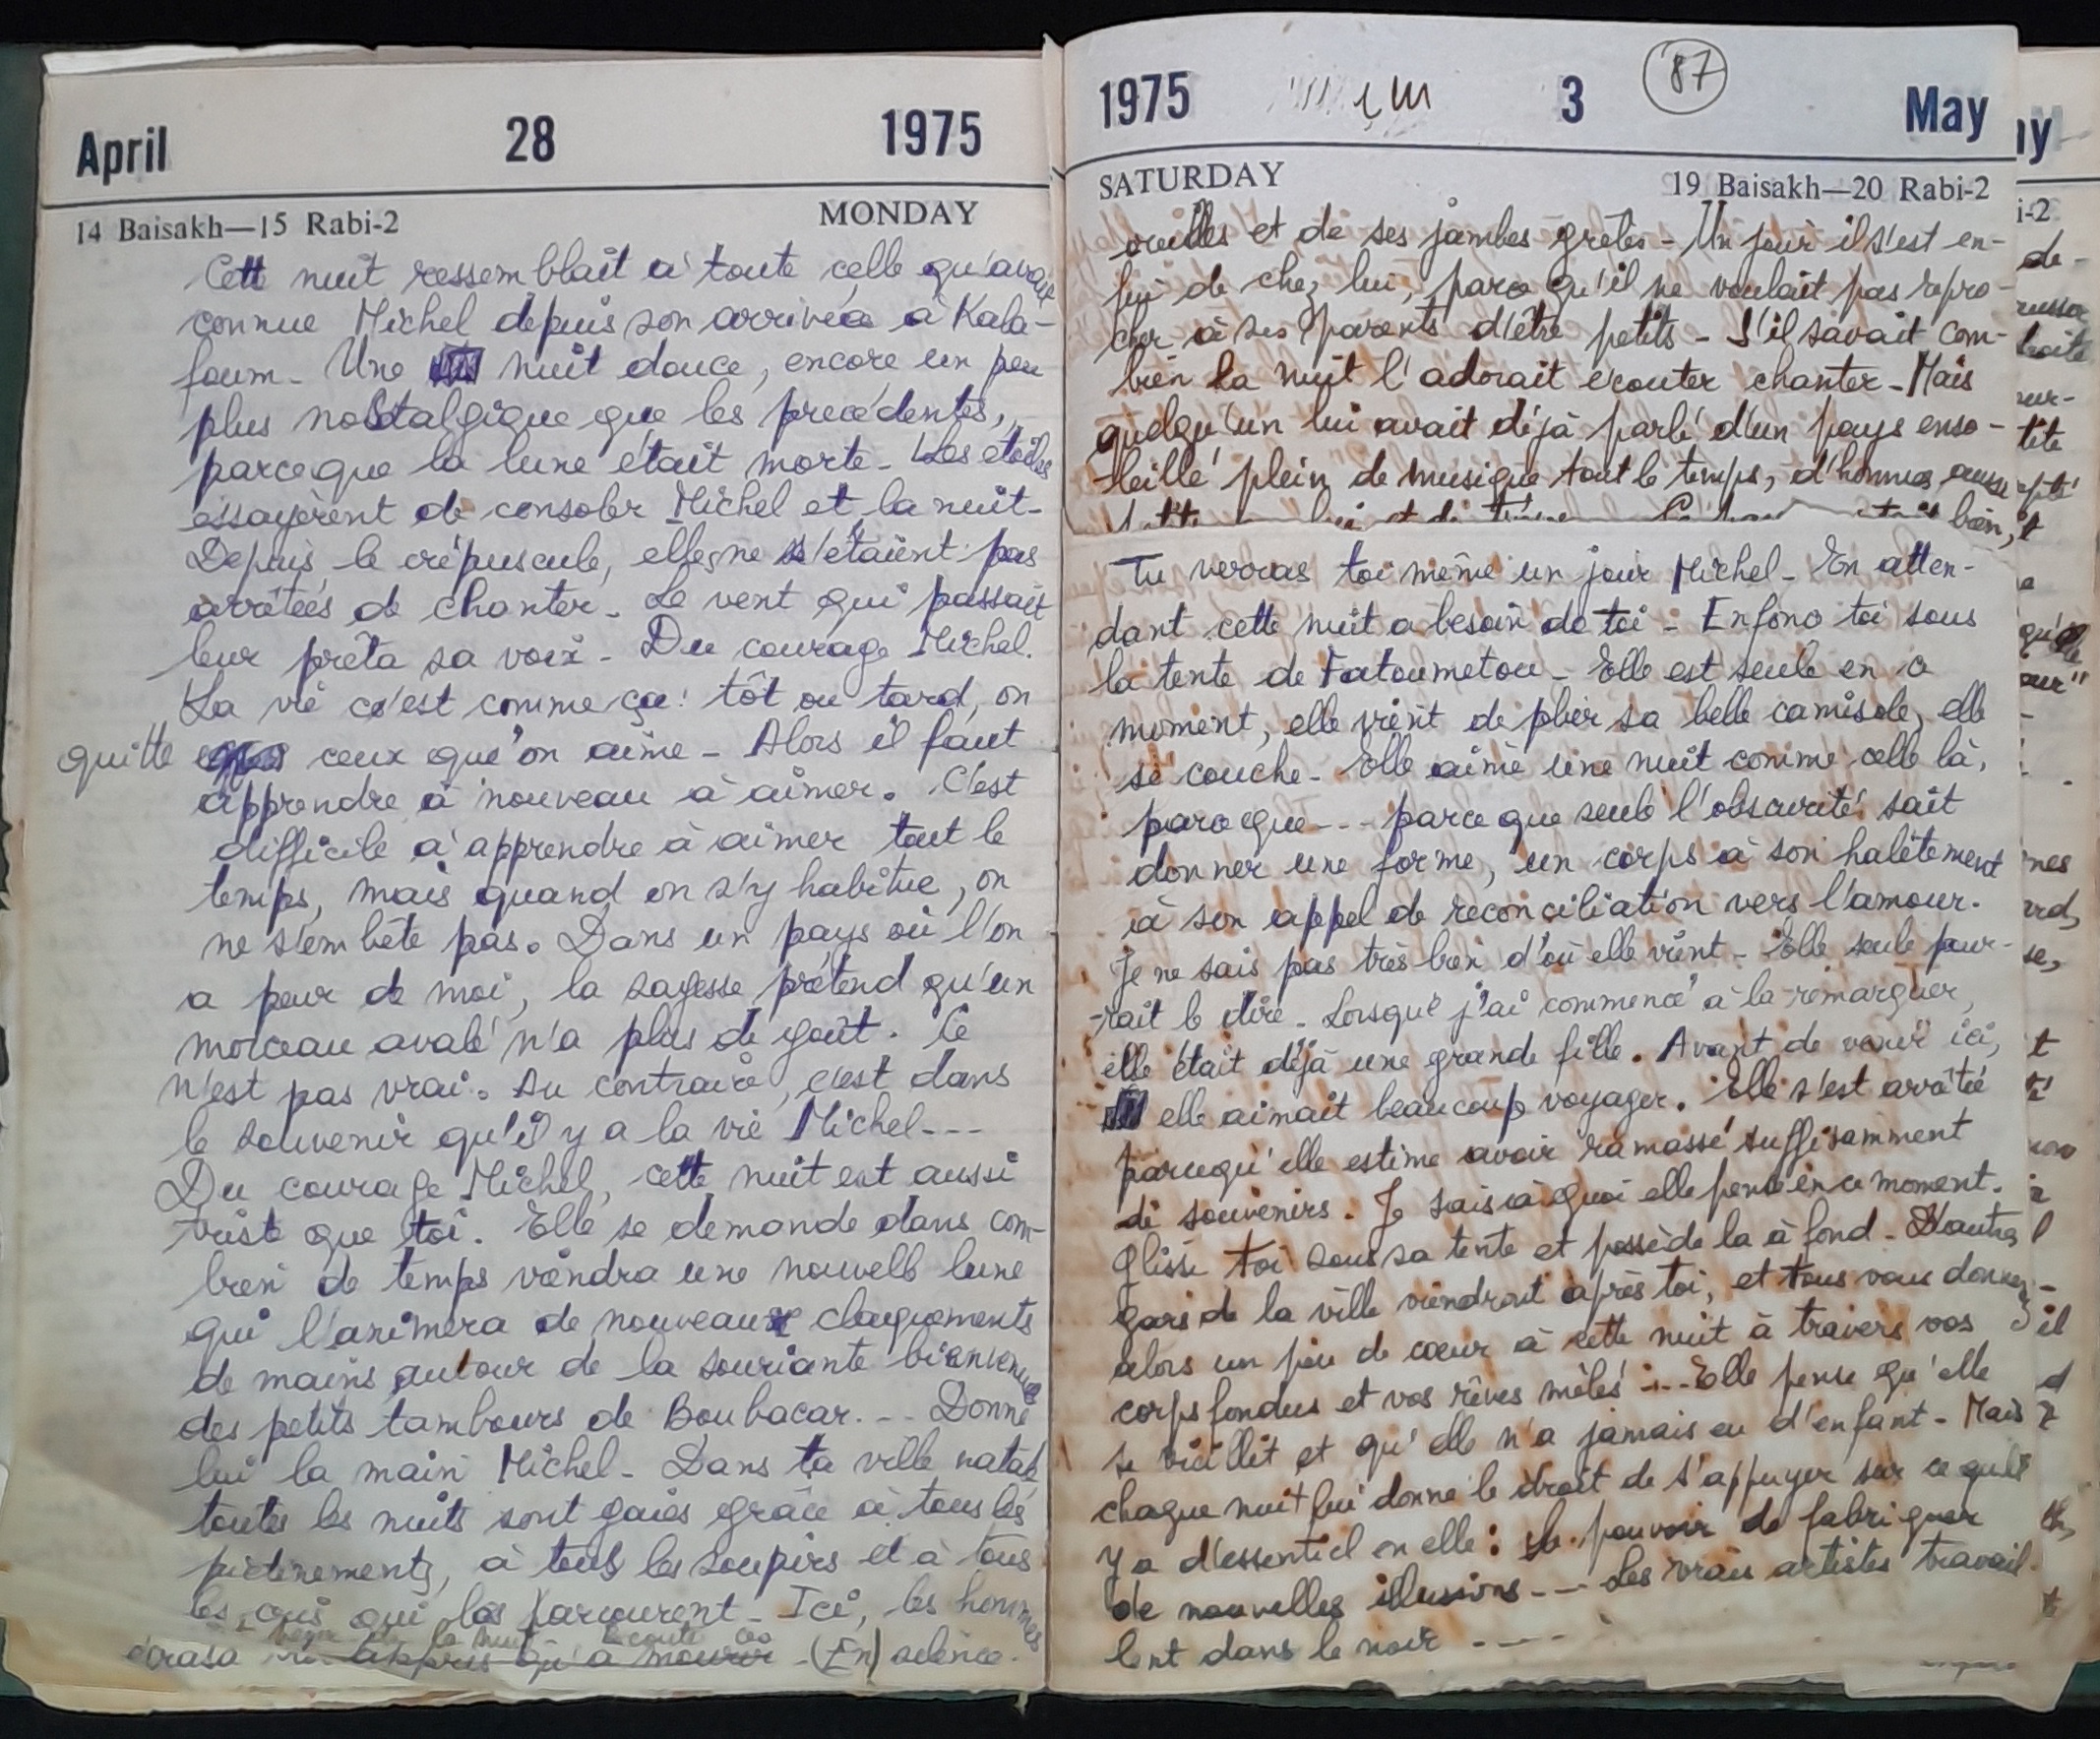 April 28 1975
14 Baisakh—15 Rabi-2 MONDAY
Cette nuit ressemblait à toute celle qu'avait
connue Michel depuis son arrivée à Kala-
foum - Une nuit douce, encore un peu
plus nostalgique que les precédentes,
parceque la lune était morte - Les étoiles
essayèrent de consoler Michel et la nuit -
Depuis le crépuscule, elles ne s'étaient pas
arrêtées de chanter - Le vent qui passait
leur prêta sa voix - Du courage Michel.
La vie c'est comme ça : tôt ou tard, on
quitte ceux que'on aime - Alors il faut
apprendre à nouveau à aimer. C'est
difficile à apprendre à aimer tout le
temps, mais quand on s'y habitue, on
ne s'embête pas. Dans un pays où l'on
a peur de moi, la sagesse prétend qu'un
morceau avalé n'a plus de goût. Ce
n'est pas vrai. Au contraire, c'est dans
le souvenir qu'il y a la vie Michel ---
Du courage Michel, cette nuit est aussi
triste que toi. Elle se demande dans com-
bien de temps viendra une nouvelle lune
qui l'animera de nouveaux claquements
de mains autour de la souriante bienvenue
des petits tambours de Boubacar. -- Donne
lui la main Michel - Dans ta ville natale
toutes les nuits sont gaies grâce à tous les
piétinements, à tous les soupirs et à tous
les cris qui les parcourent - Ici, les hommes
écrasa appris qu'à mourir - (En) silence.
1975 3 87 May
SATURDAY 19 Baisakh—20 Rabi-2
oreilles et de ses jambes grêles - Un jour il s'est en-
fui de chez lui, parce qu'il ne voulait pas repro-
cher à ses parents d'être petits - S'il savait com-
bien la nuit l'adorait écouter chanter - Mais
quelqu'un lui avait déjà parlé d'un pays enso-
leillé plein de musique tout le temps, d'hommes aussi
bien,
Tu verras toi même un jour Michel - En atten-
dant cette nuit a besoin de toi - Enfonce toi sous
la tente de Fatoumetou - Elle est seule en ce
moment, elle vient de plier sa belle camisole, elle
se couche - Elle aime une nuit comme celle là,
parceque --- parceque seule l'obscurité sait
donner une forme, un corps à son halètement
à son appel de reconciliation vers l'amour.
Je ne sais pas très bien d'où elle vient - Elle seule pour-
-rait le dire - Lorsque j'ai commencé à la remarquer,
elle était déjà une grande fille. Avant de venir ici,
elle aimait beaucoup voyager. Elle s'est arrêtée
parcequ'elle estime avoir ramassé suffisamment
de souvenirs. Je sais à quoi elle pense en ce moment.
Glisse toi sous sa tente et possède la à fond - D'autres
gars de la ville viendront après toi, et tous vous donnez
alors un peu de cœur à cette nuit à travers vos
corps fondus et vos rêves mêlés ... Elle pense qu'elle
se vieillit et qu'elle n'a jamais eu d'enfant - Mais
chaque nuit lui donne le droit de s'appuyer sur ce qu'il
y a d'essentiel en elle : le pouvoir de fabriquer
de nouvelles illusions --- Les vrais artistes travail-
lent dans le noir ----